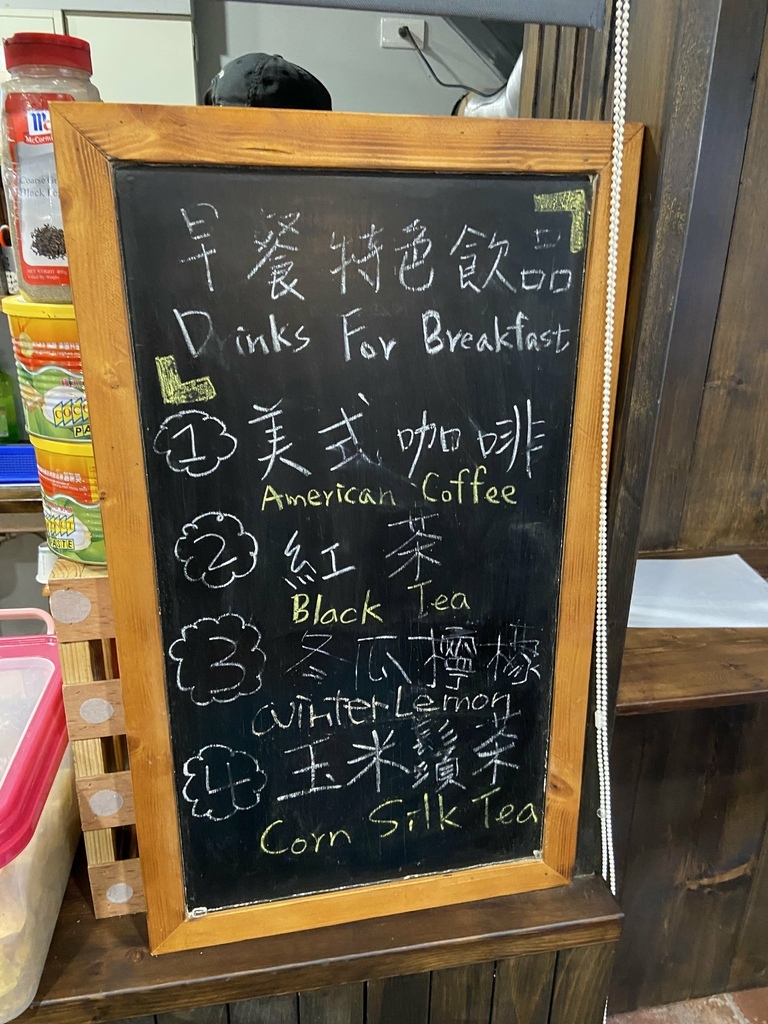 早餐特色飲品
Drinks For Breakfast
1 美式咖啡
American Coffee
2 紅茶
Black Tea
3 冬瓜檸檬
Winter Lemon
4 玉米鬚茶
Corn Silk Tea
McCormick
Black
COCO
PA